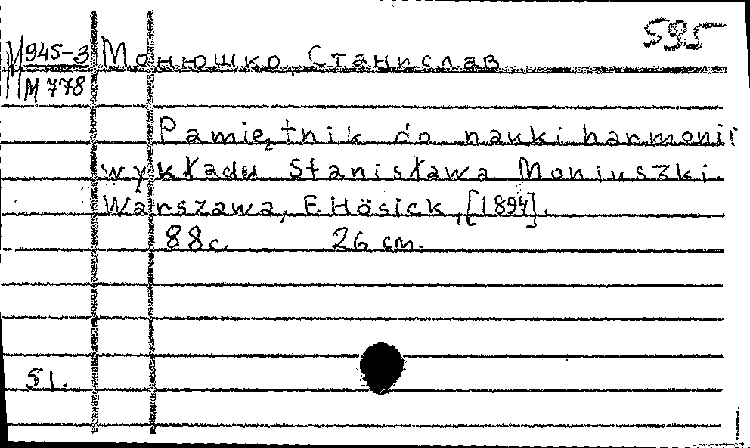 595
М 945-3 Монюшко, Станислав
М 778
Pamiętnik do nauki harmonii
wykładu Stanisława Moniuszki.
Warszawa, F. Hösick, [1894].
88 с. 26 cm.
51.